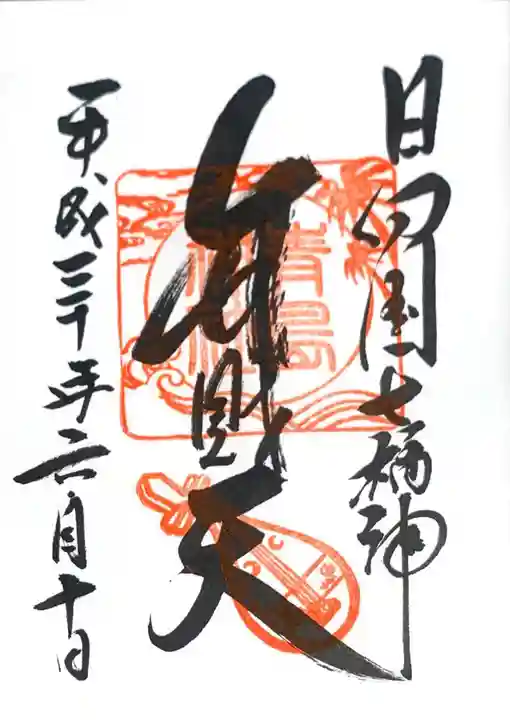 日向国七福神
弁財天
青島神社
平成三十年六月十日